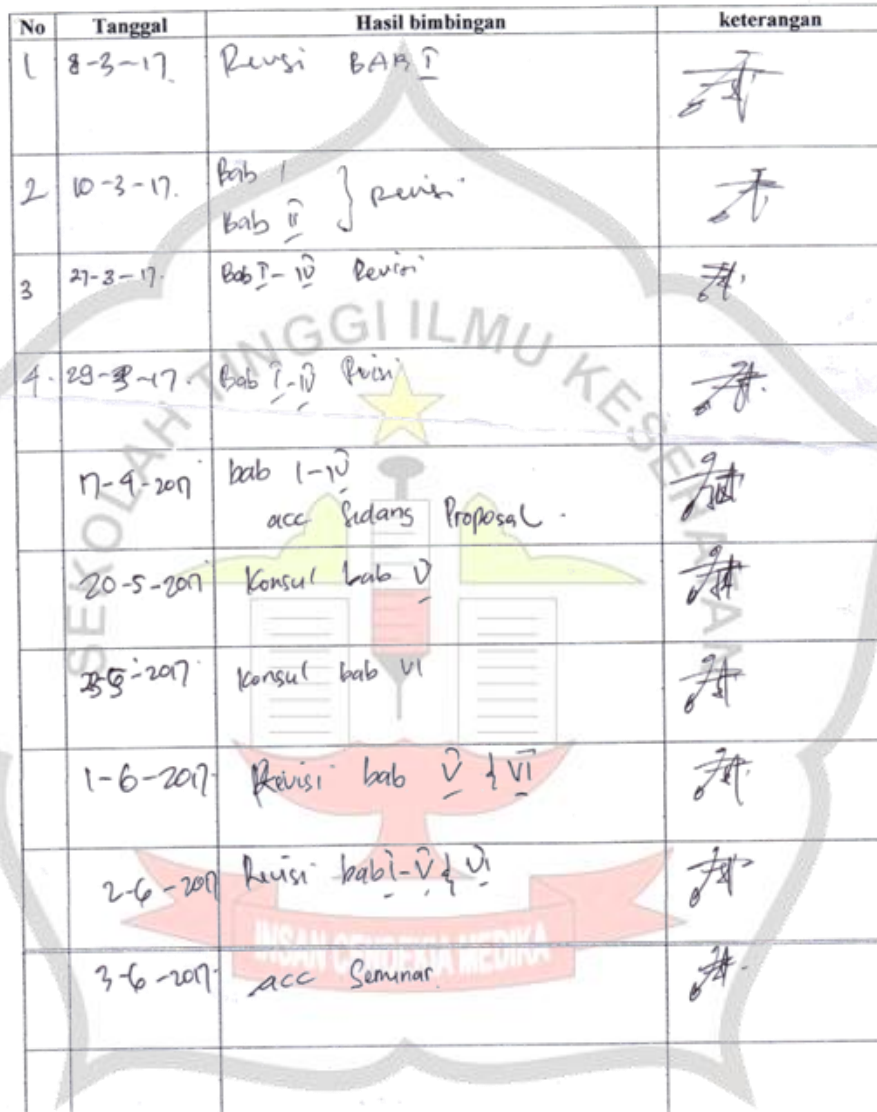 No Tanggal Hasil bimbingan keterangan
1 8-3-17. Revisi BAB I
2 10-3-17. Bab I
Bab II } Revisi
3 27-3-17. Bab I-IV Revisi
4. 29-3-17. Bab I-IV Revisi
17-4-2017 bab I-IV
acc Sidang Proposal.
20-5-2017 Konsul bab V
-2017 Konsul bab VI
1-6-2017 Revisi bab V & VI
2-6-2017 Revisi bab I-V & VI
3-6-2017 acc Seminar
SEKOLAH TINGGI ILMU KESEHATAN
INSAN CENDEKIA MEDIKA